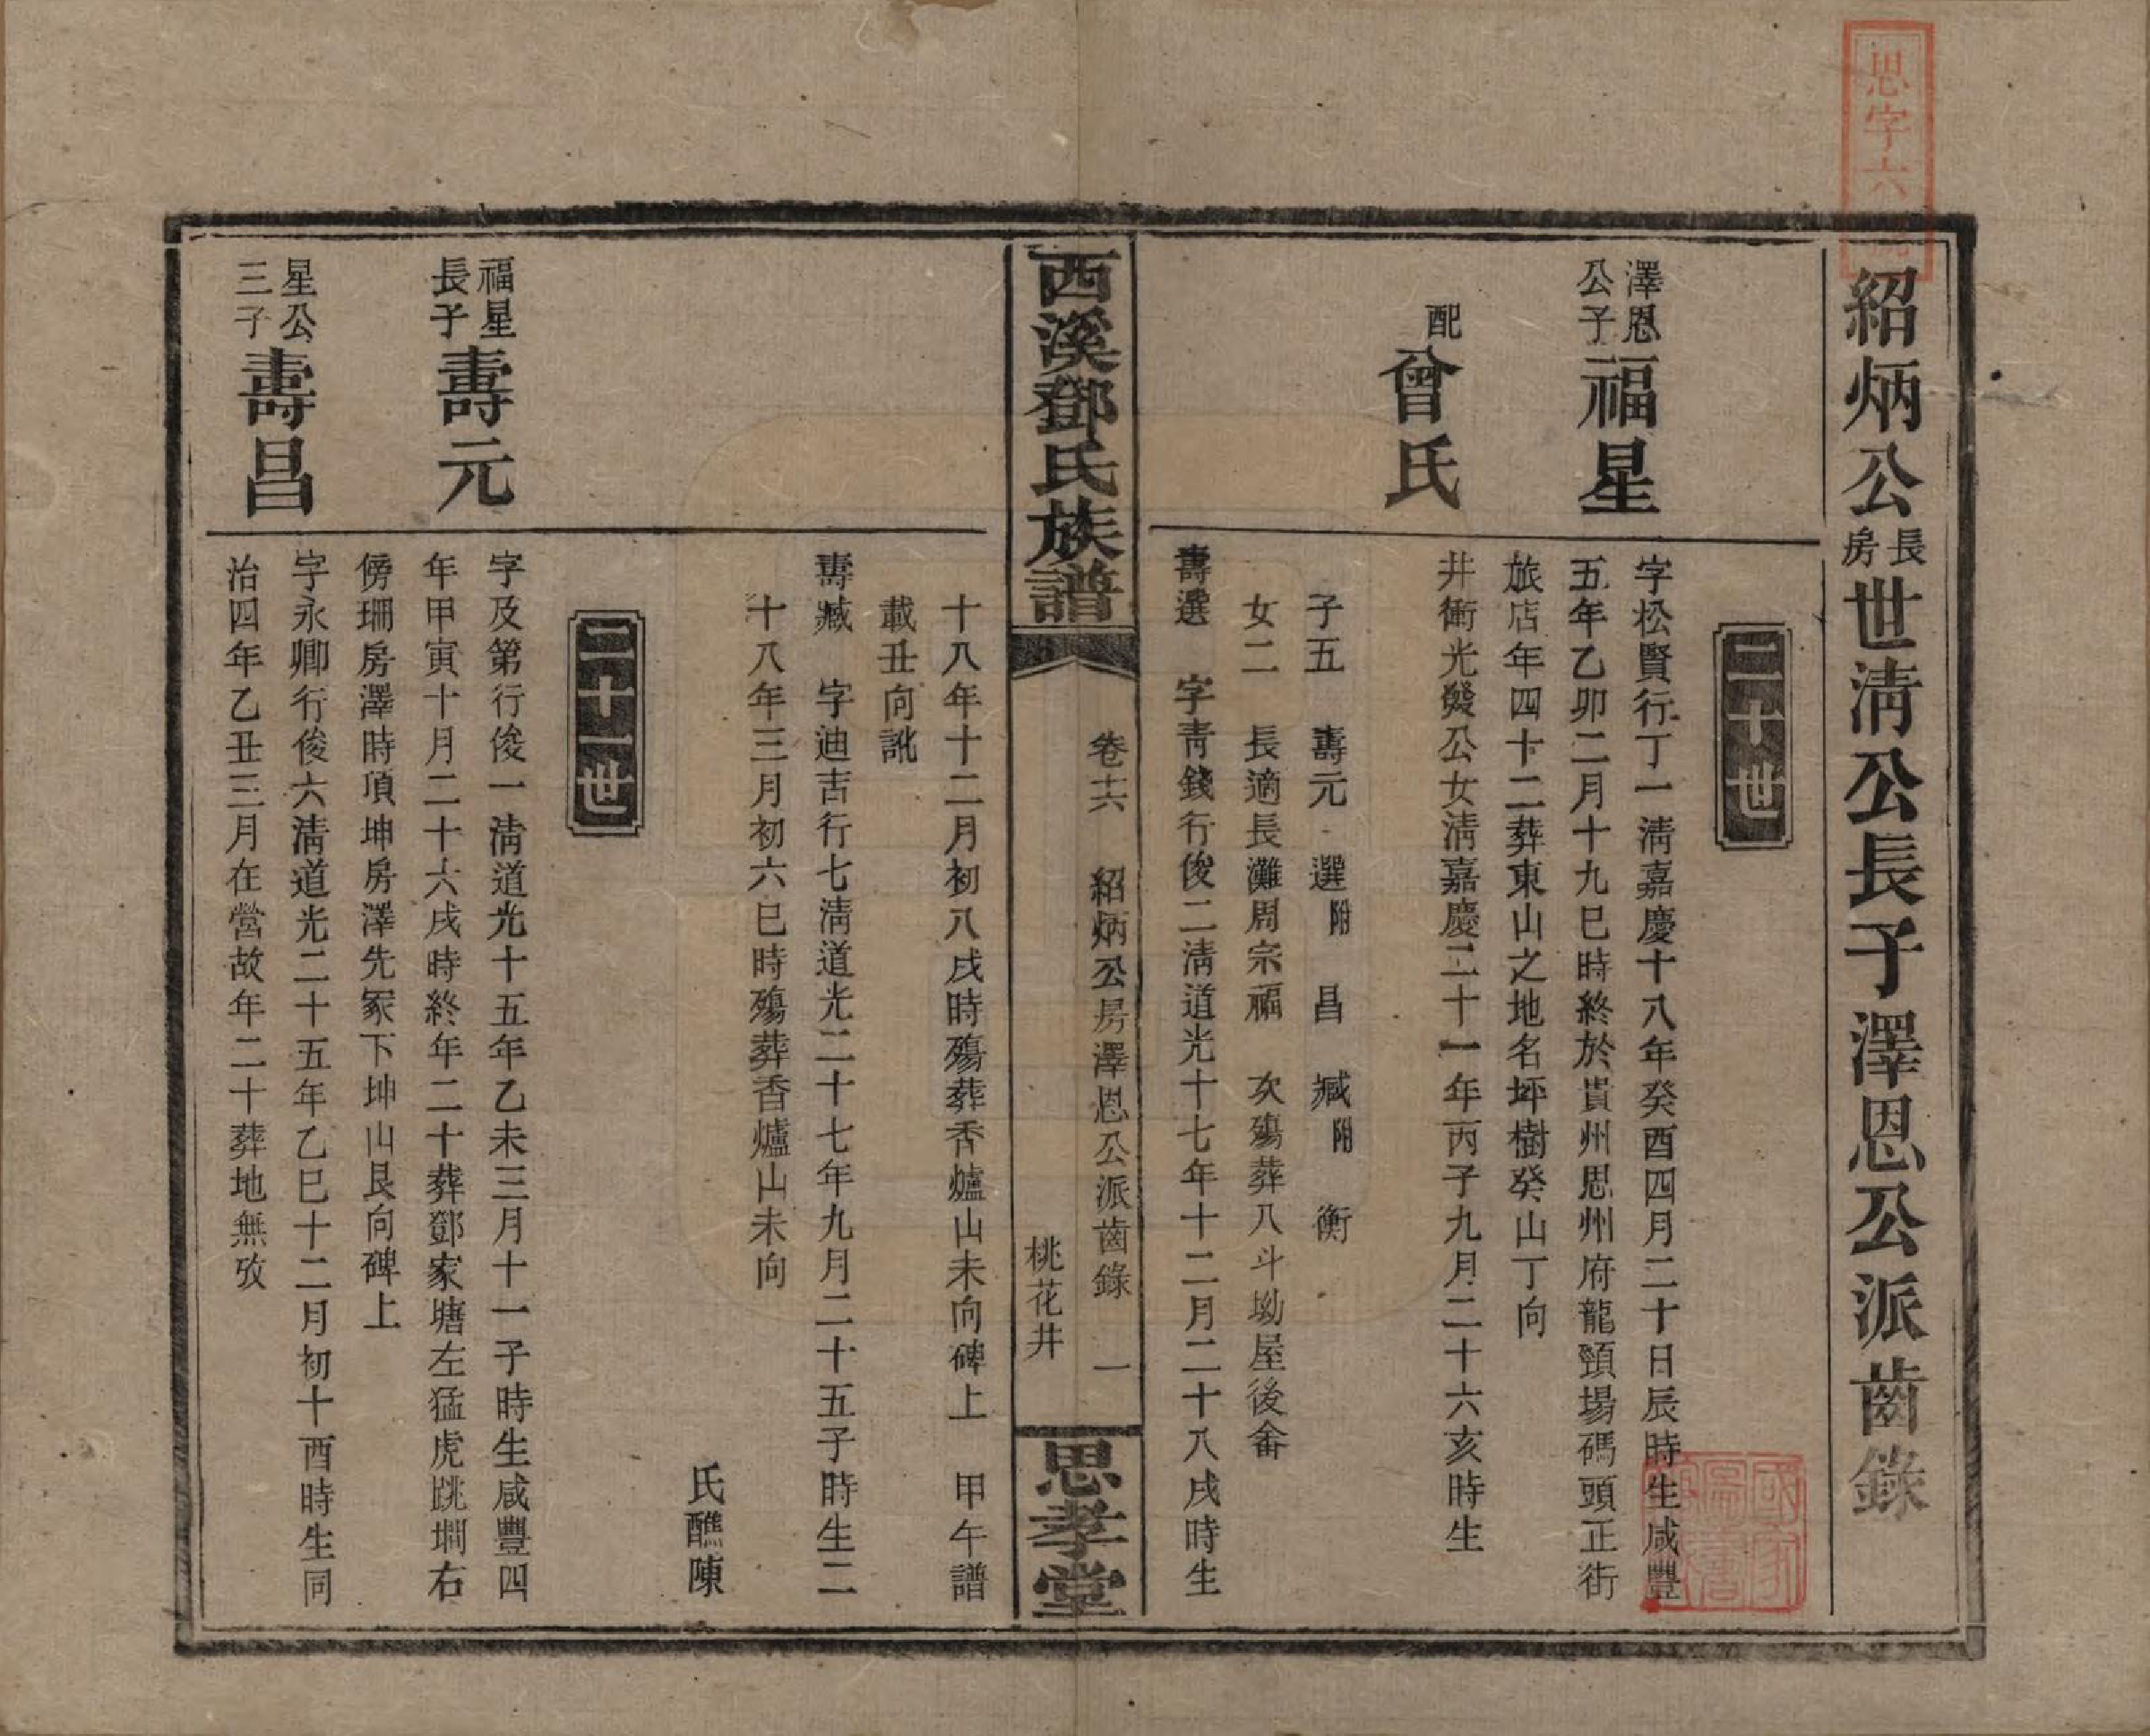 思字六
紹炳公長房世淸公長子澤恩公派齒錄
二十世
澤恩公子福星
字松賢行丁一淸嘉慶十八年癸酉四月二十日辰時生咸豐
五年乙卯二月十九巳時終於貴州思州府龍頸場碼頭正街
旅店年四十二葬東山之地名坪樹癸山丁向
配曾氏
井衝光燮公女淸嘉慶二十一年丙子九月二十六亥時生
子五 壽元 選附 昌 臧附 衡
女二 長適長灘周宗福 次殤葬八斗坳屋後畬
壽選 字靑錢行俊二淸道光十七年十二月二十八戌時生
西溪鄧氏族譜
卷十六 紹炳公房澤恩公派齒錄 一
桃花井
思孝堂
十八年十二月初八戌時殤葬香爐山未向碑上 甲午譜
載丑向訛
壽臧 字迪吉行七淸道光二十七年九月二十五子時生二
十八年三月初六巳時殤葬香爐山未向
氏醮陳
二十一世
福星長子壽元
字及第行俊一淸道光十五年乙未三月十一子時生咸豐四
年甲寅十月二十六戌時終年二十葬鄧家塘左猛虎跳墹右
傍珊房澤時項坤房澤先冢下坤山艮向碑上
星公三子壽昌
字永卿行俊六淸道光二十五年乙巳十二月初十酉時生同
治四年乙丑三月在營故年二十葬地無攷